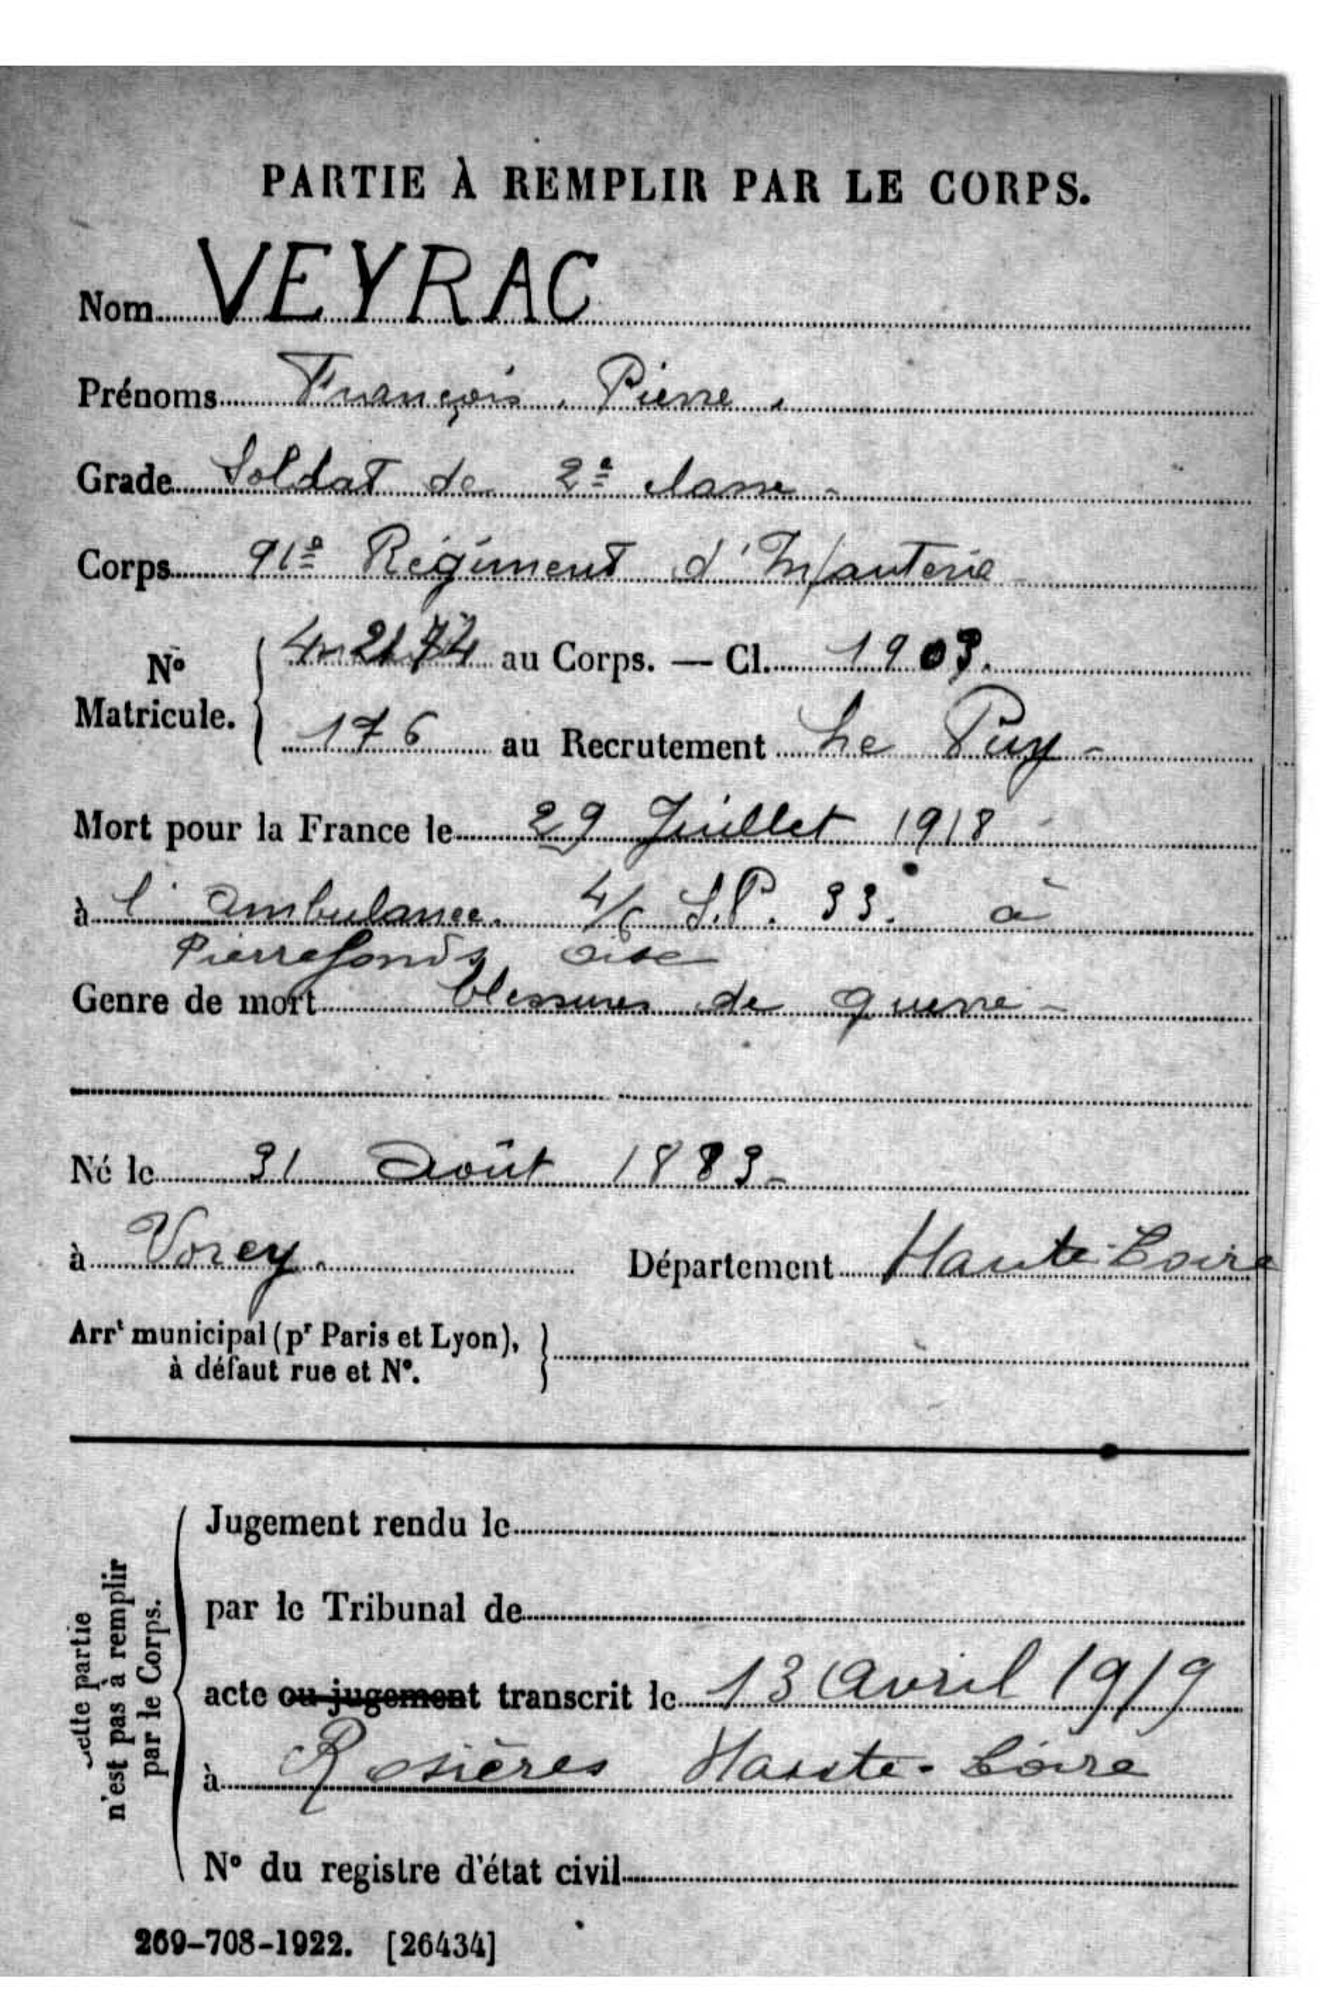 PARTIE À REMPLIR PAR LE CORPS.
Nom VEYRAC
Prénoms François, Pierre.
Grade Soldat de 2e classe -
Corps 91e Régiment d'Infanterie
No Matricule. { au Corps. — Cl. 1903.
176 au Recrutement Le Puy -
Mort pour la France le 29 Juillet 1918
à l'ambulance. 4/6 S.P. 33. à
Pierrefonds Oise
Genre de mort blessures de guerre -
Né le 31 Août 1883 -
à Vorey. Département Haute-Loire
Arrt municipal (pr Paris et Lyon), }
à défaut rue et No.
Cette partie
n'est pas à remplir
par le Corps.
Jugement rendu le
par le Tribunal de
acte ou jugement transcrit le 13 Avril 1919
à Rosières Haute-Loire
No du registre d'état civil
269-708-1922. [26434]